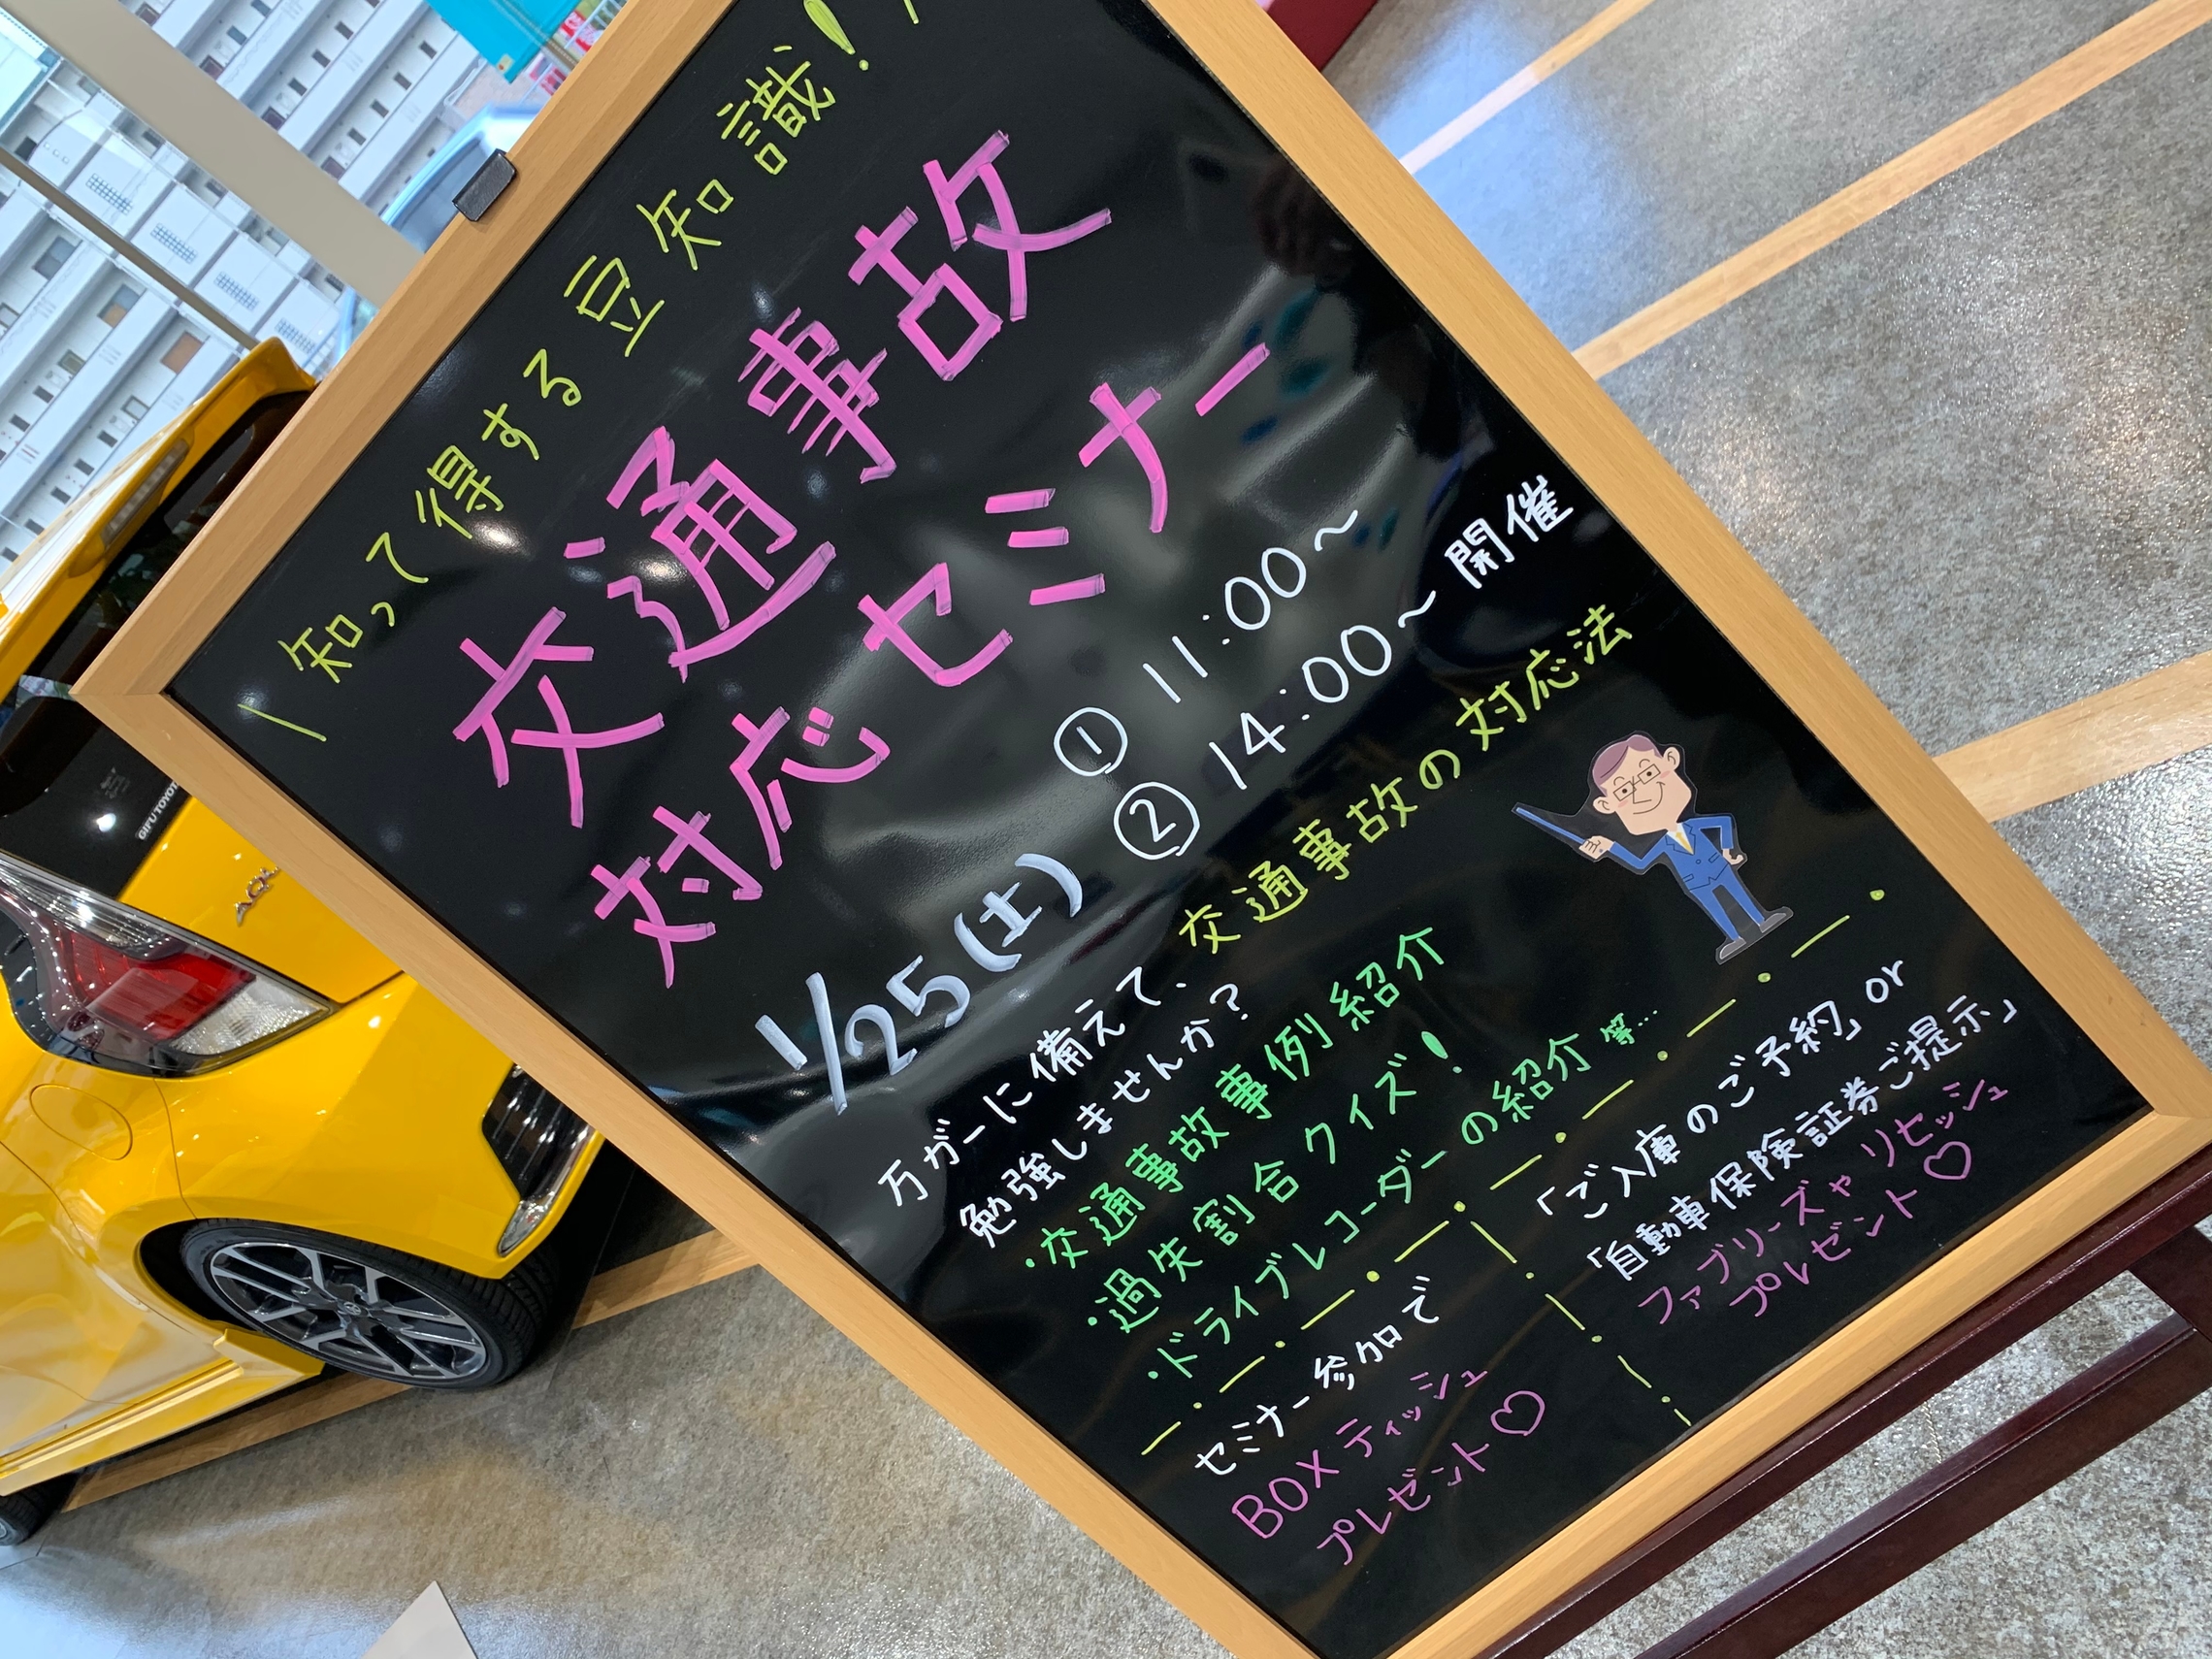 \ 知って得する豆知識! /
交通事故
対応セミナー
1/25(土)
① 11:00~
② 14:00~ 開催
万が一に備えて、交通事故の対応法
勉強しませんか?
・交通事故事例紹介
・過失割合クイズ!
・ドライブレコーダーの紹介 等…
セミナー参加で
BOXティッシュ
プレゼント♡
「ご入庫のご予約」or
「自動車保険証券ご提示」
ファブリーズやリセッシュ
プレゼント♡
GIFU TOYOT
AQU